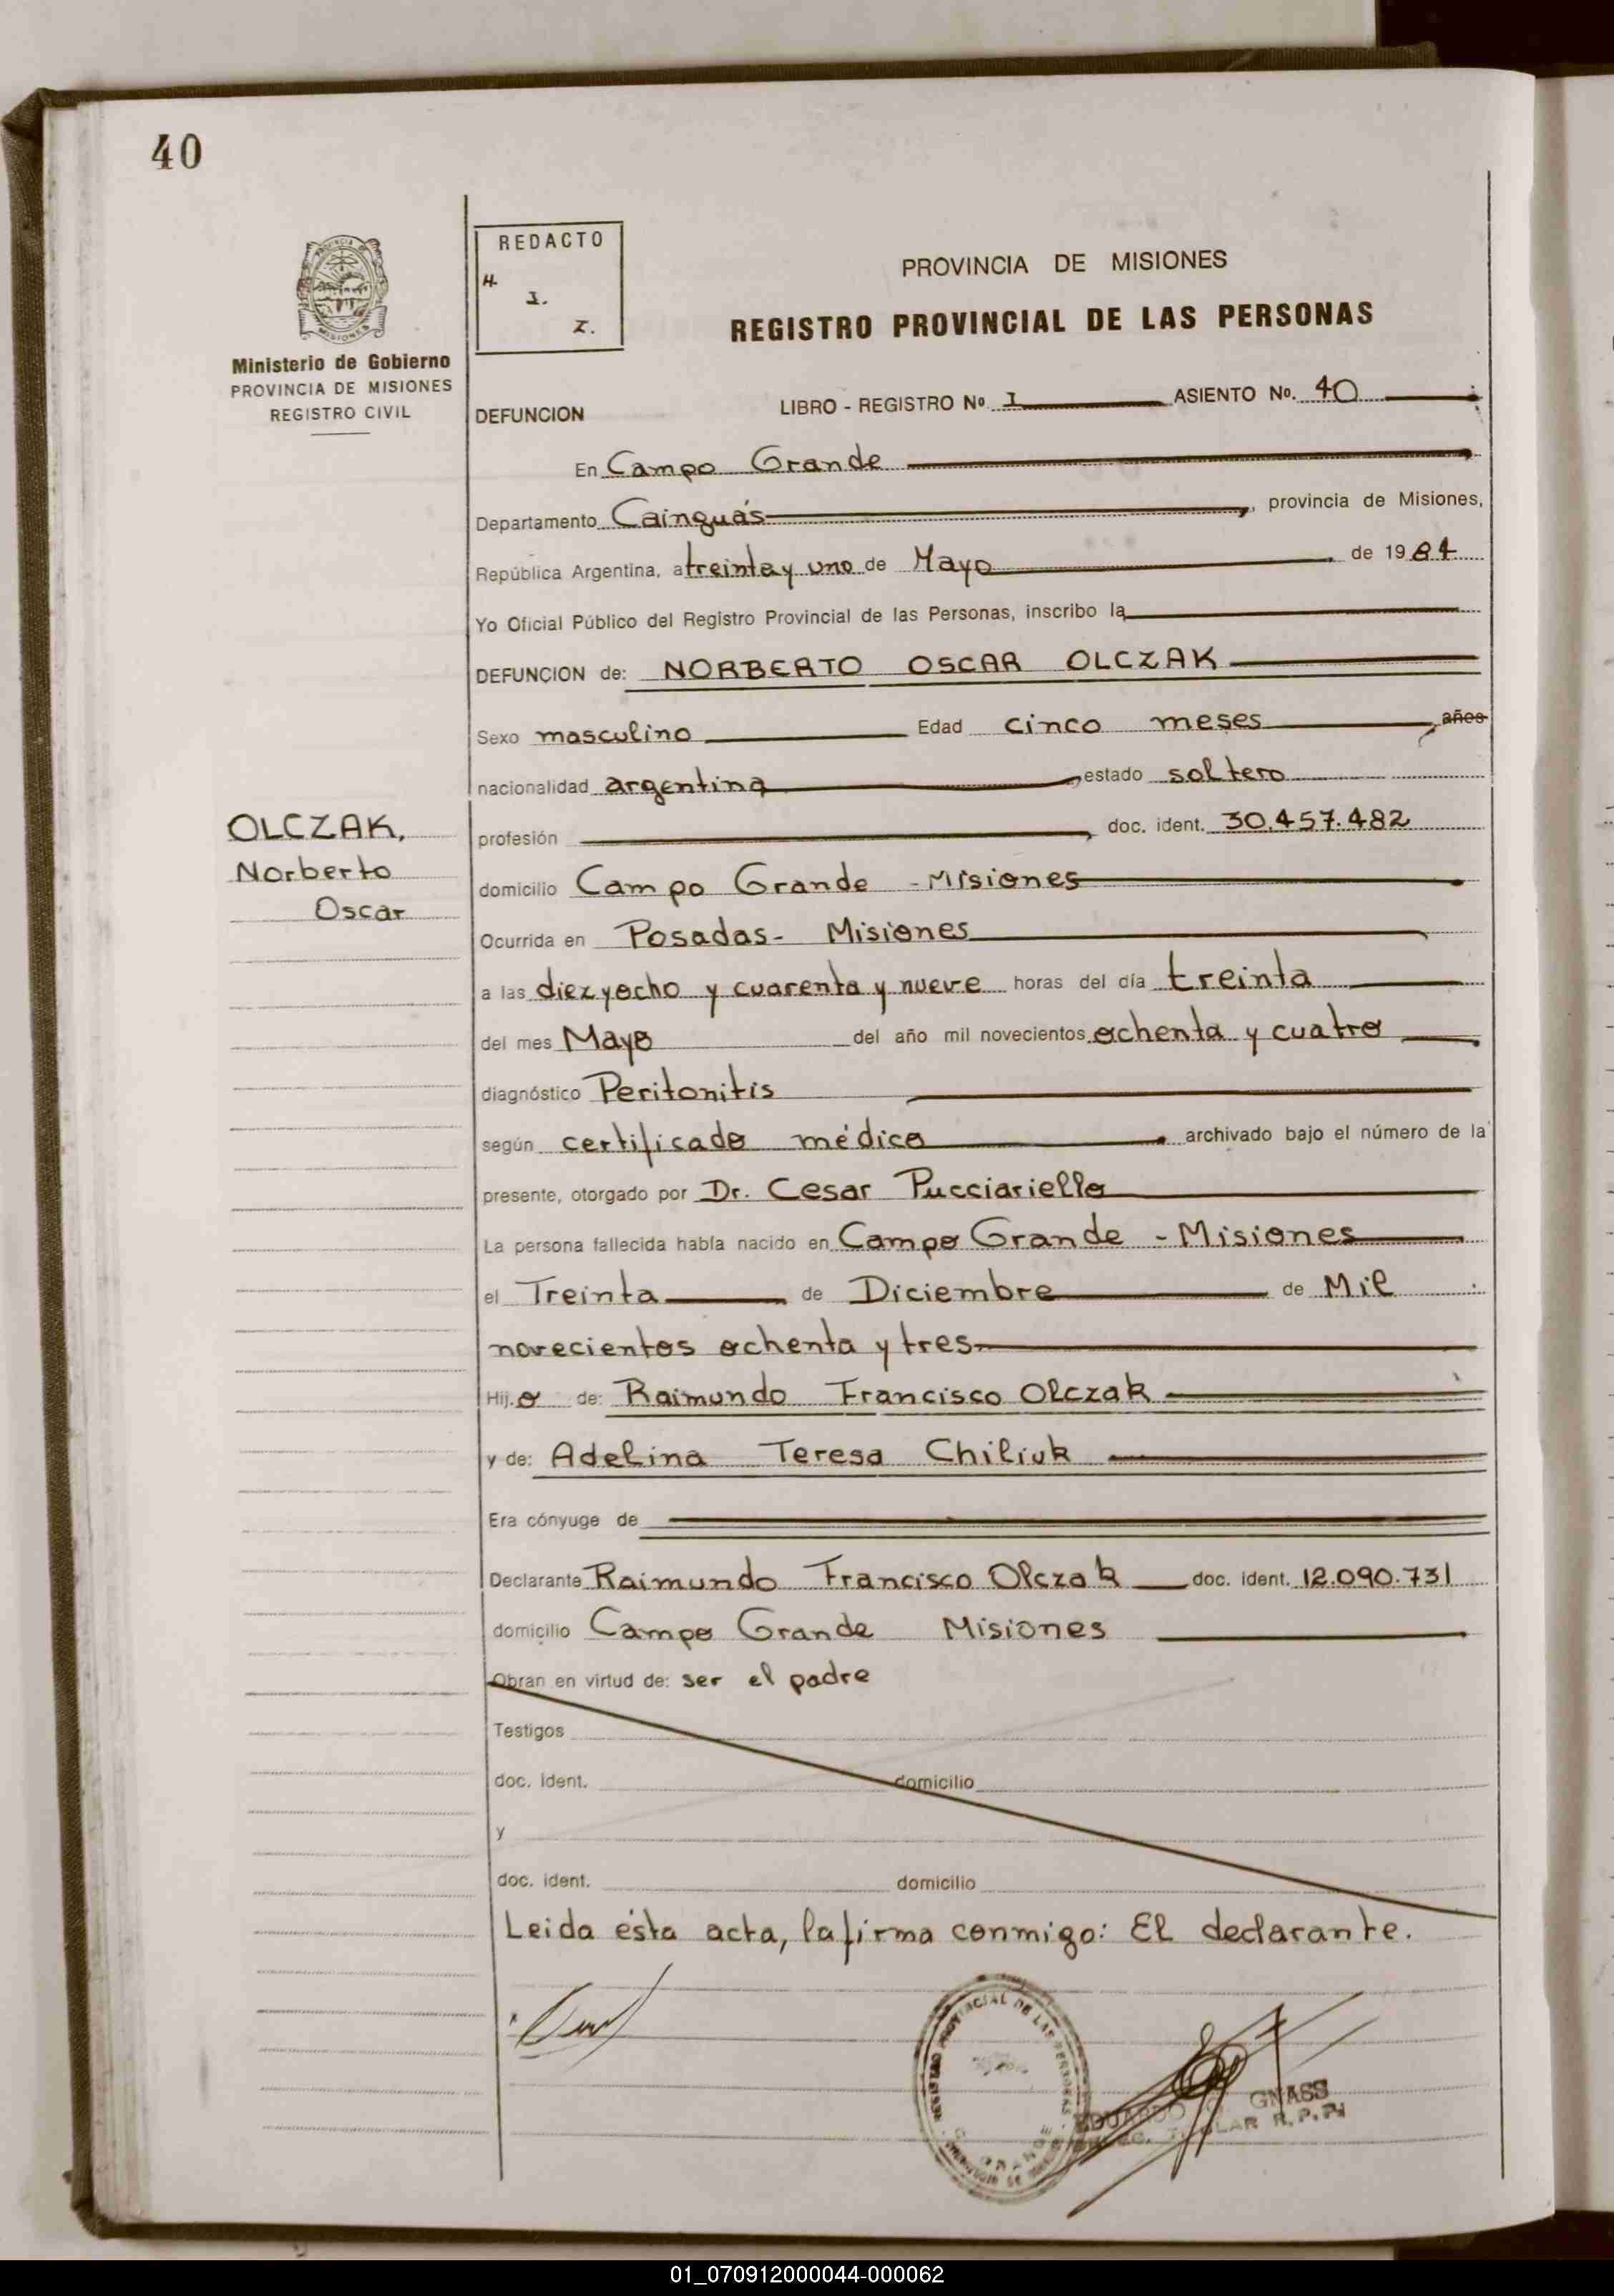 40
REDACTO
H.
I.
Z.
PROVINCIA DE MISIONES
REGISTRO PROVINCIAL DE LAS PERSONAS
Ministerio de Gobierno
PROVINCIA DE MISIONES
REGISTRO CIVIL
DEFUNCION LIBRO - REGISTRO Nº I ASIENTO No. 40
En Campo Grande
Departamento Cainguás, provincia de Misiones,
República Argentina, a treinta y uno de Mayo de 1984
Yo Oficial Público del Registro Provincial de las Personas, inscribo la
DEFUNCION de: NORBERTO OSCAR OLCZAK
Sexo masculino Edad cinco meses, años
nacionalidad argentina, estado soltero
OLCZAK,
Norberto
Oscar
profesión, doc. ident. 30.457.482
domicilio Campo Grande - Misiones
Ocurrida en Posadas - Misiones
a las diez y ocho y cuarenta y nueve horas del día treinta
del mes Mayo del año mil novecientos ochenta y cuatro
diagnóstico Peritonitis
según certificado médico archivado bajo el número de la
presente, otorgado por Dr. Cesar Pucciariello
La persona fallecida había nacido en Campo Grande - Misiones
el Treinta de Diciembre de Mil
novecientos ochenta y tres
Hij.o de: Raimundo Francisco Olczak
y de: Adelina Teresa Chiliuk
Era cónyuge de
Declarante Raimundo Francisco Olczak doc. ident. 12.090.731
domicilio Campo Grande Misiones
Obran en virtud de: ser el padre
Testigos
doc. ident. domicilio
y
doc. ident. domicilio
Leida ésta acta, la firma conmigo: El declarante.
EDUARDO GNASS
01_070912000044-000062